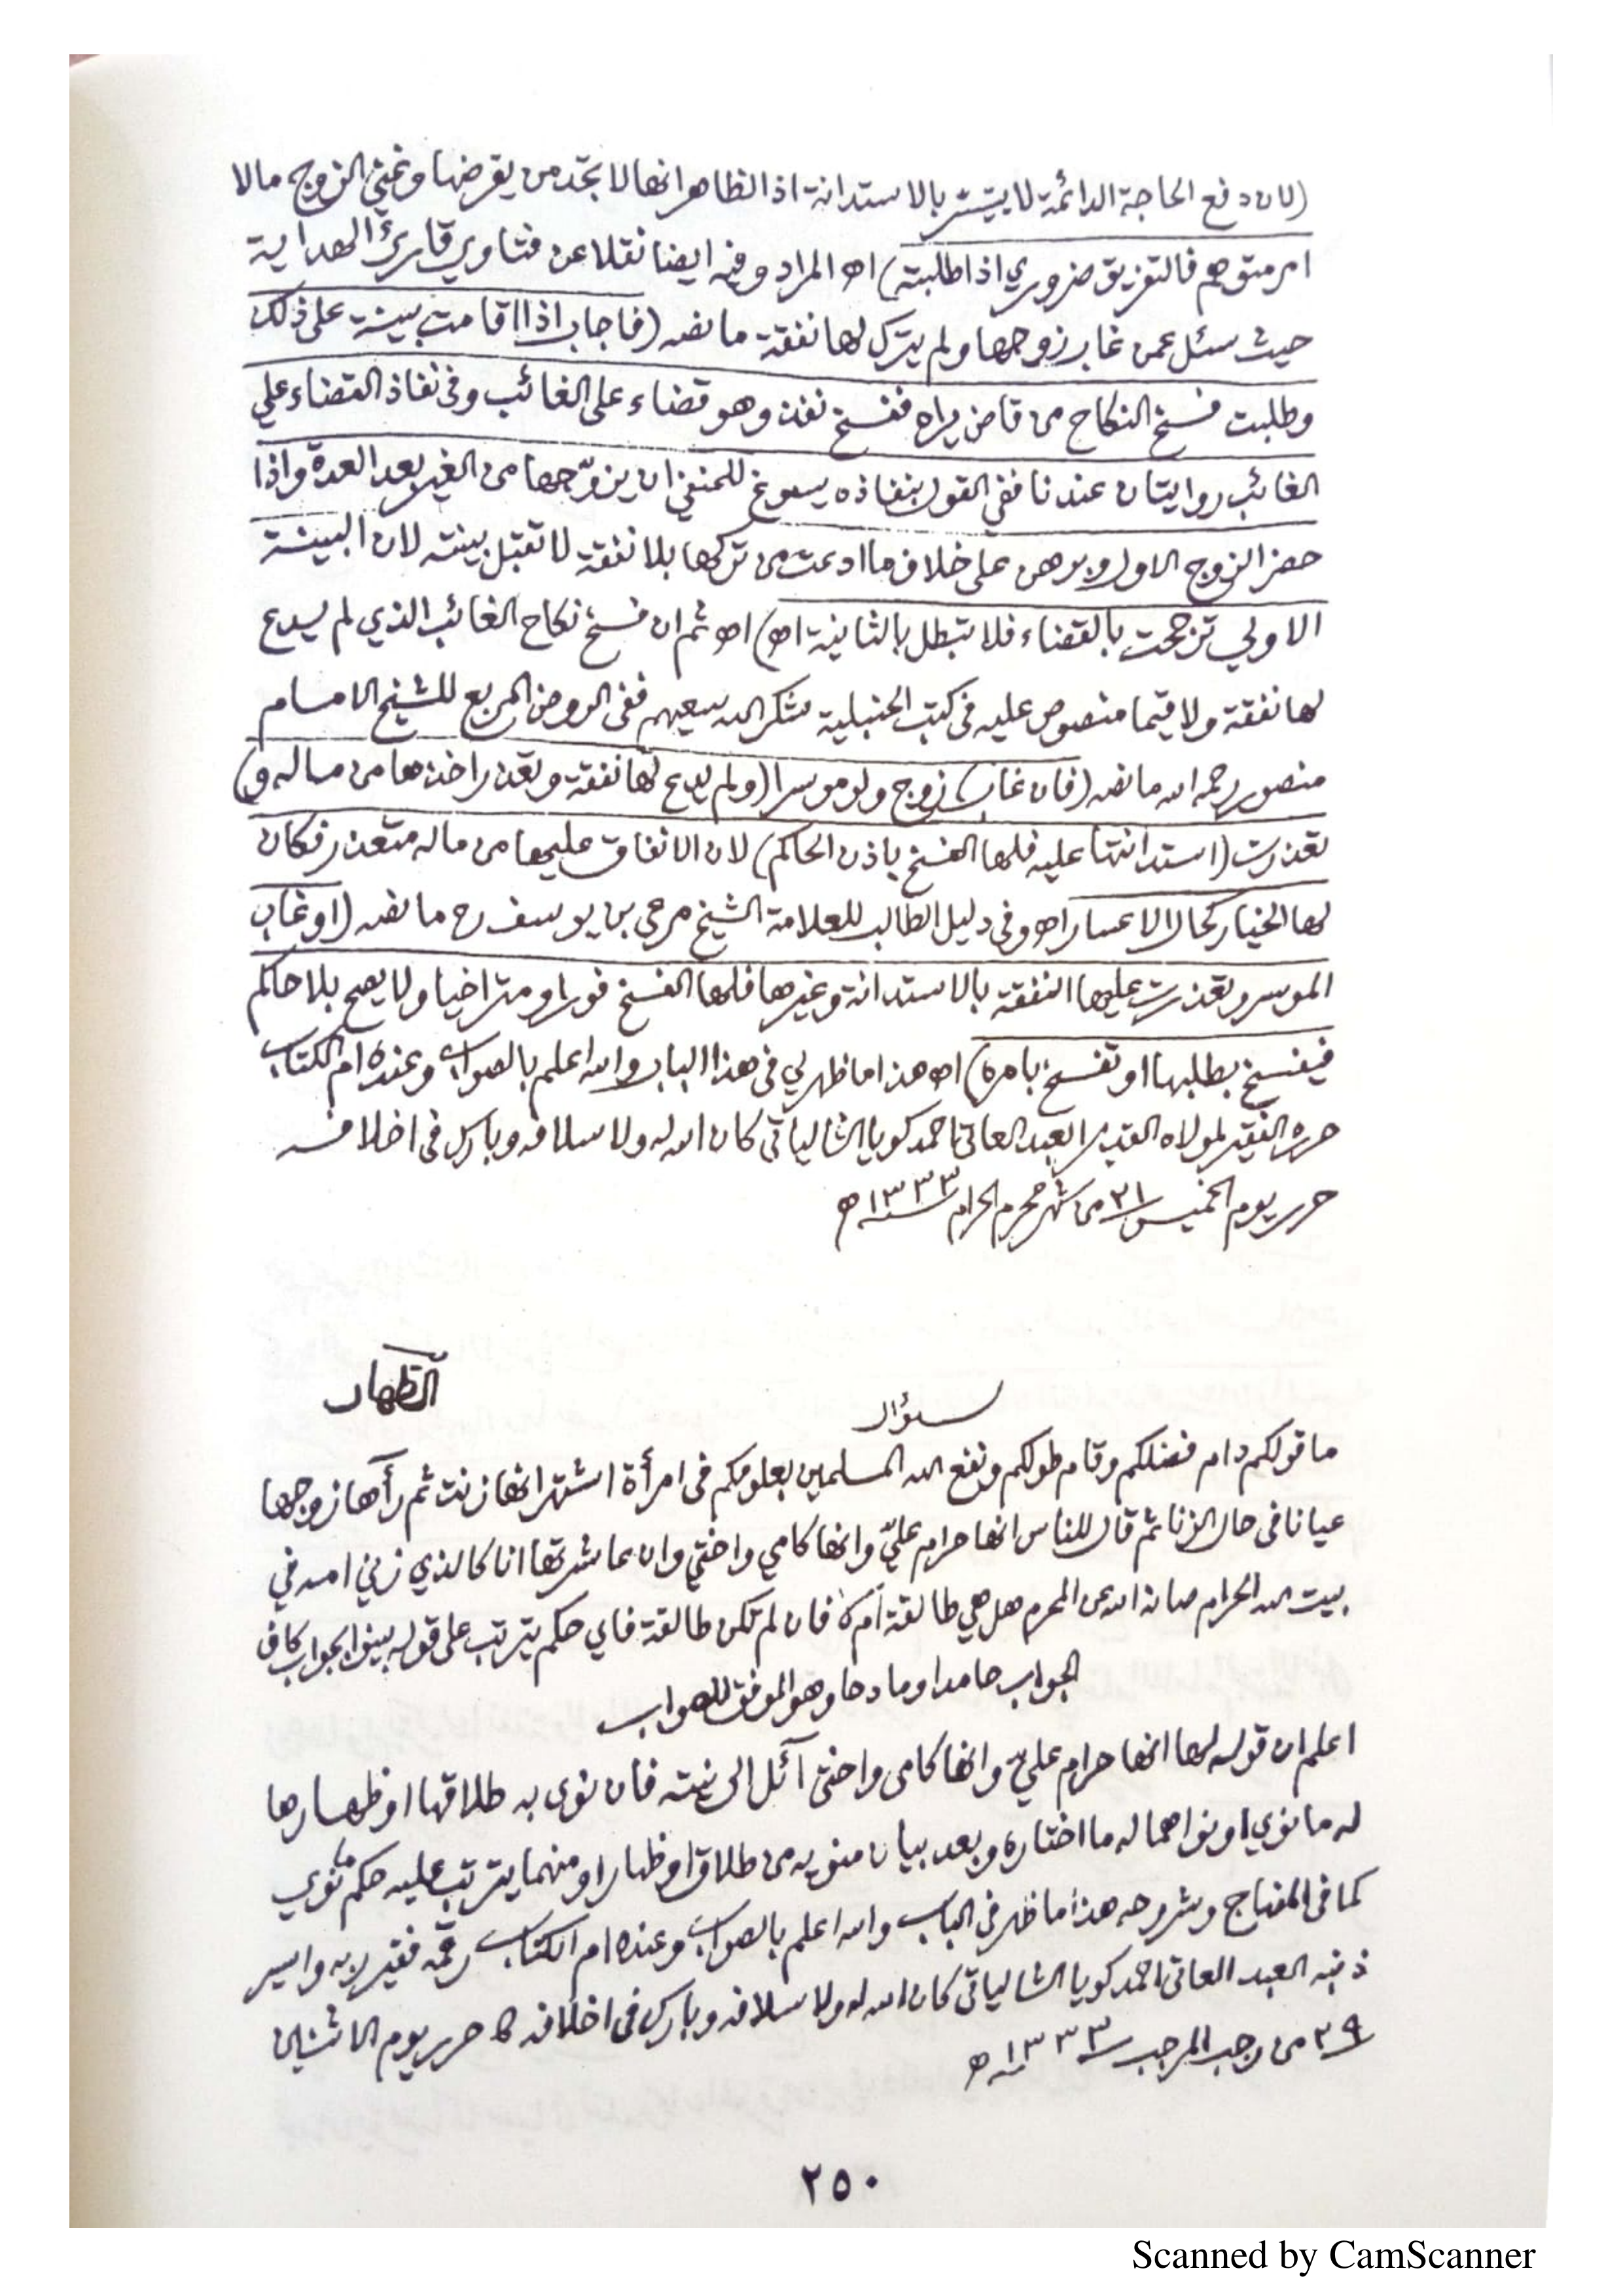 (لان دفع الحاجة الدائمة لا يتيسر بالاستدانة اذ الظاهر انها لا تجد من يقرضها وغنى الزوج مالا
امر متوهم فالتفريق ضروري اذا طلبته) اه المراد وفيه ايضا نقلا عن فتاوي قارئ الهداية
حيث سئل عمن غاب زوجها ولم يترك لها نفقة ما نصه (فاجاب اذا اقامت بينة على ذلك
وطلبت فسخ النكاح من قاض يراه ففسخ نفذ وهو قضاء على الغائب وفي نفاذ القضاء علي
الغائب روايتان عندنا ففي القول بنفاذه يسوغ للحنفي ان يزوّجها من الغير بعد العدة واذا
حضر الزوج الاول وبرهن على خلاف ما ادعت من تركها بلا نفقة لا تقبل بينته لان البينة
الاولي ترجحت بالقضاء فلا تبطل بالثانية اه) اه ثم ان فسخ نكاح الغائب الذي لم يدع
لها نفقة ولا قيما منصوص عليه في كتب الحنبلية شكر الله سعيهم ففي الروض المربع للشيخ الامام
منصور رحمه الله ما نصه (فان غاب) زوج ولو موسرا (ولم يدع لها نفقة وتعذر اخذها من ماله و)
تعذرت (استدانتها عليه فلها الفسخ باذن الحاكم) لان الانفاق عليها من ماله متعذر فكان
لها الخيار كحال الاعسار اه وفي دليل الطالب للعلامة الشيخ مرعي بن يوسف رح ما نصه (او غاب
الموسر وتعذرت عليها النفقة بالاستدانة وغيرها فلها الفسخ فورا ومتراخيا ولا يصح بلا حاكم
فيفسخ بطلبها او تفسخ بامره) اه هذا ما ظهر لي في هذا الباب والله اعلم بالصواب وعنده ام الكتاب
حرره الفقير لمولاه القدير العبد العاتي احمد كويا الشالياتي كان الله له ولاسلافه وبارك في اخلافه
حرر يوم الخميس ٢١ من شهر محرم الحرام ١٣٣٣ه
الظهار
سؤال
ما قولكم دام فضلكم وقام طولكم ونفع الله المسلمين بعلومكم في امرأة اشتهر انها زنت ثم رآها زوجها
عيانا في حال الزنا ثم قال للناس انها حرام عليّ وانها كامي واختي وان عاشرتها انا كالذي زني امه في
بيت الله الحرام صانه الله عن المحرم هل هي طالقة ام لا فان لم تكن طالقة فاي حكم يترتب على قوله بينوا بجواب كاف
الجواب حامدا ومادحا وهو الموفق للصواب
اعلم ان قوله لها انها حرام عليّ وانها كامي واختي آئل الى نيته فان نوى به طلاقها او ظهارها
له ما نوي او نواهما له ما اختاره وبعد بيان منويه من طلاق او ظهار او منهما يترتب عليه حكم ما نوي
كما في المنهاج وشروحه هذا ما ظهر في الباب والله اعلم بالصواب وعنده ام الكتاب رقمه فقير ربه واسير
ذنبه العبد العاتي احمد كويا الشالياتي كان الله له ولاسلافه وبارك في اخلافه حرر يوم الاثنين
٢٩ من رجب المرجب ١٣٣٣ه
٢٥٠
Scanned by CamScanner